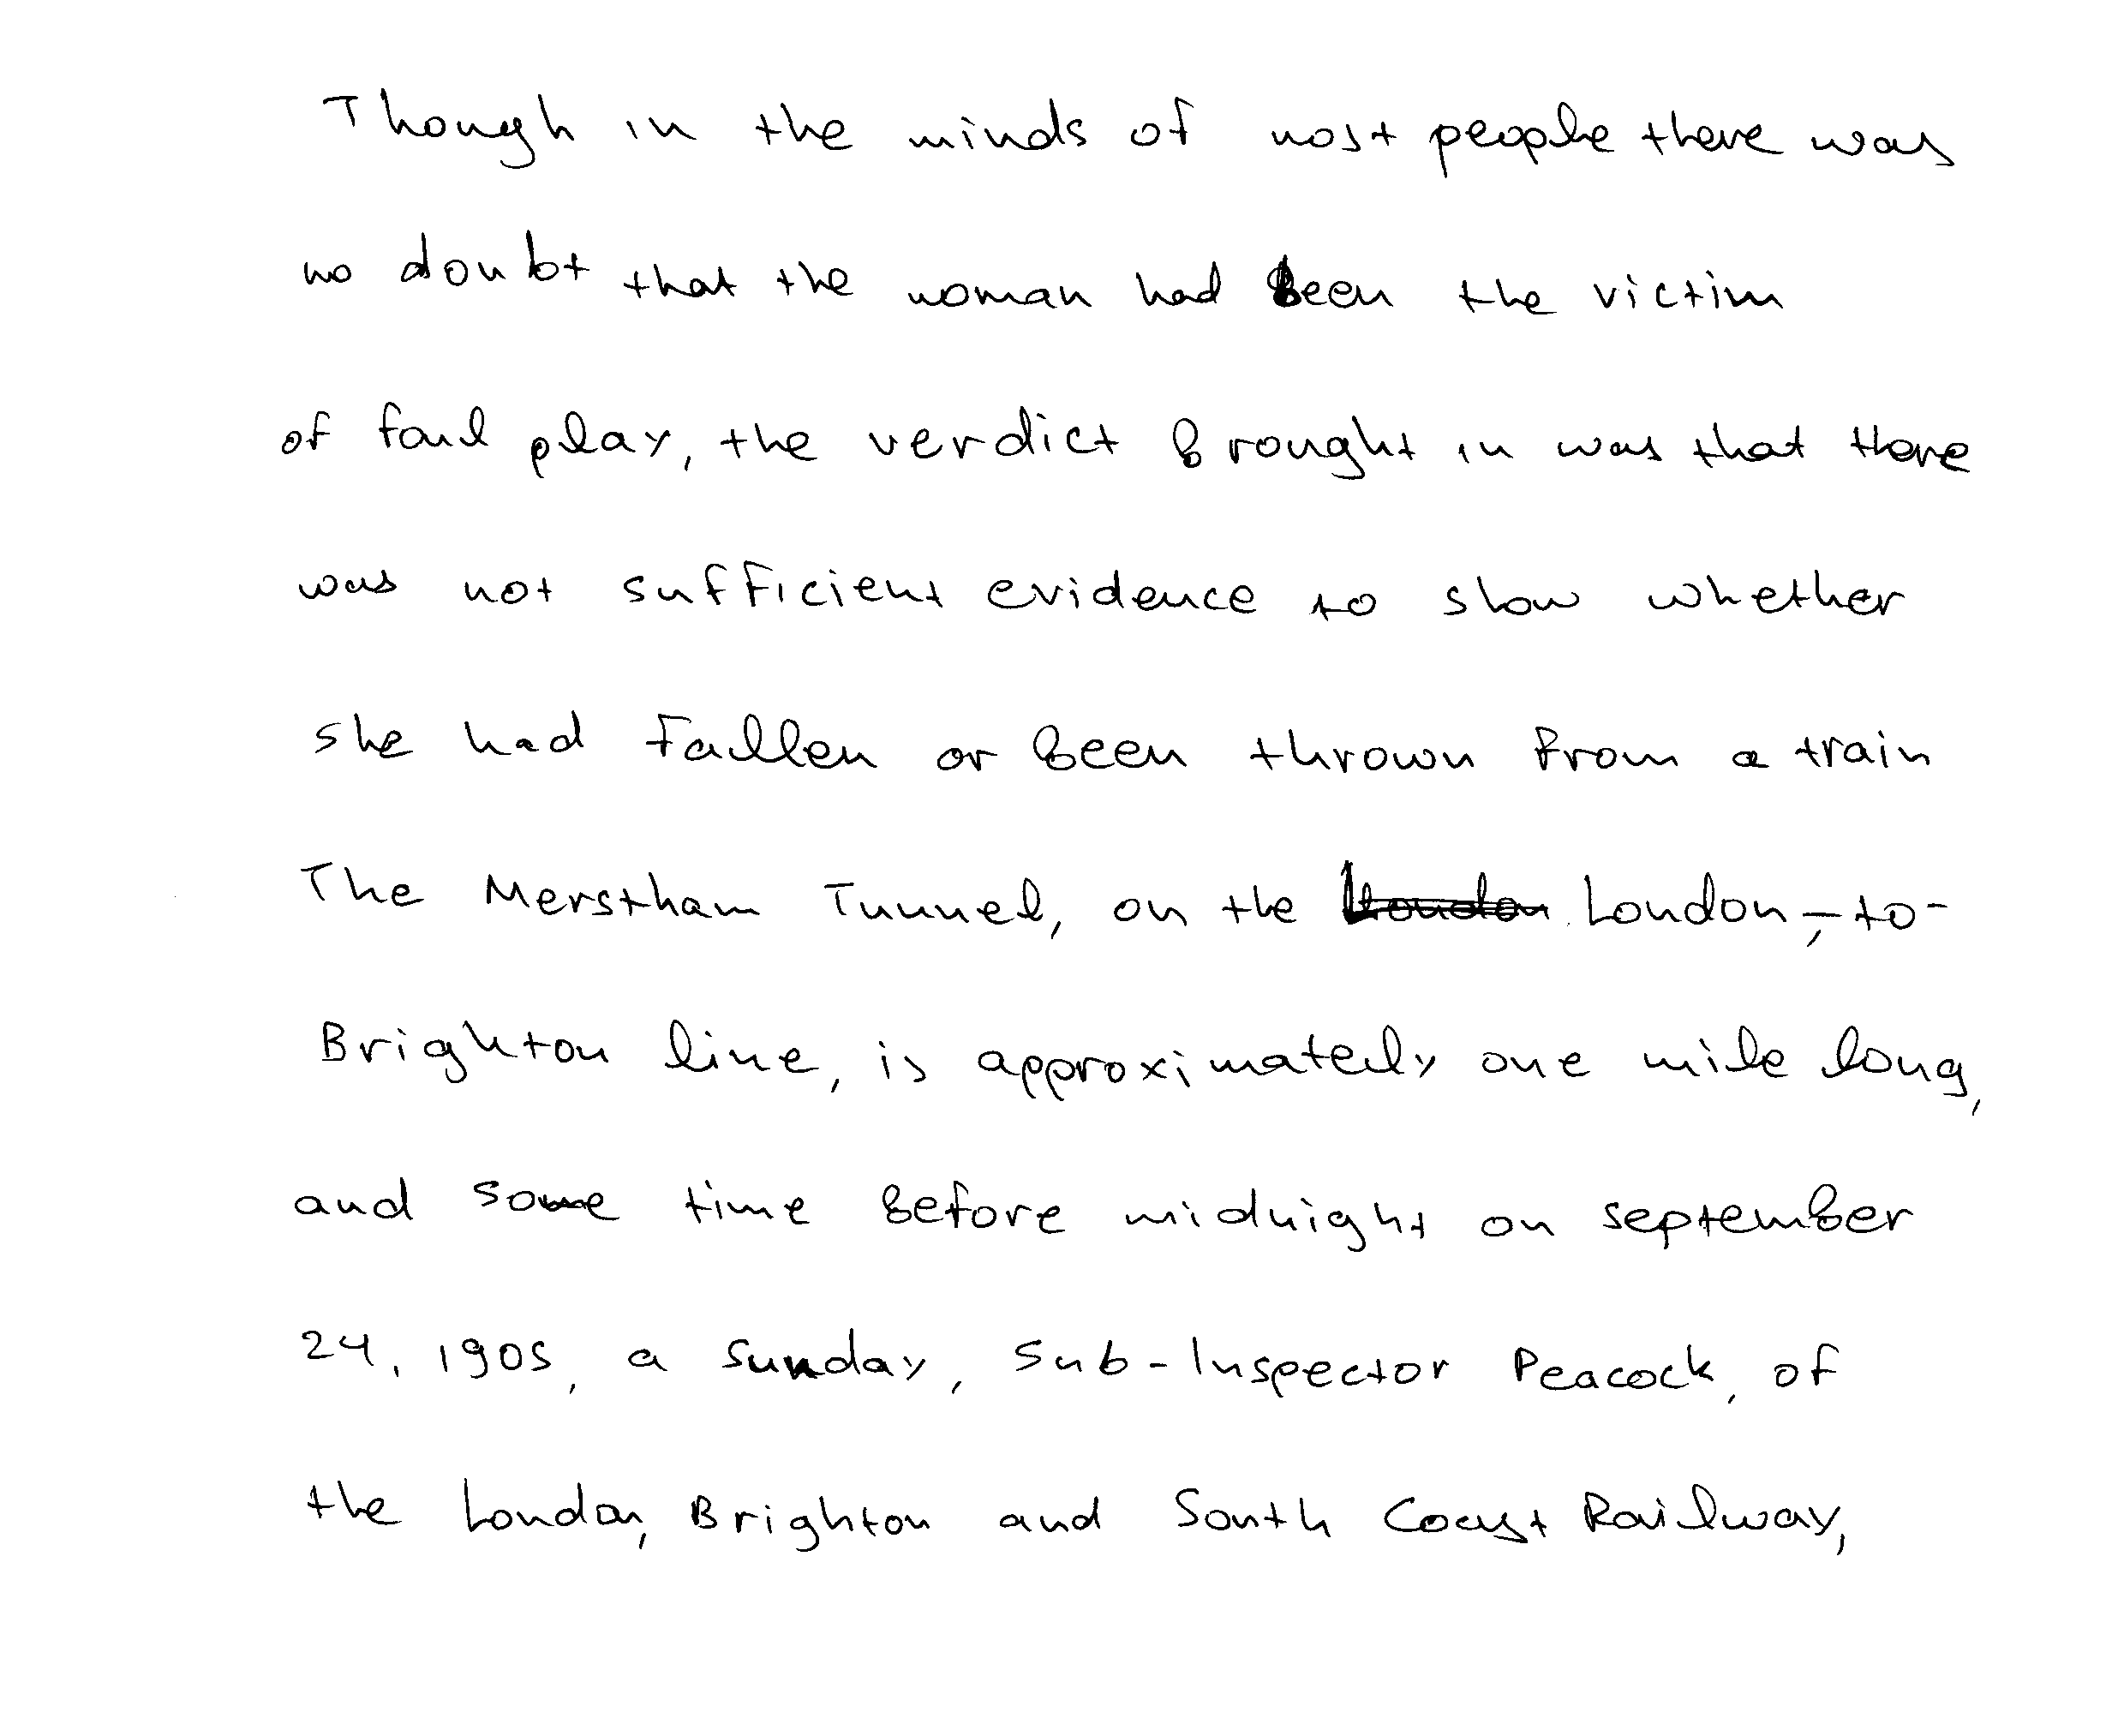 Though in the minds of most people there was
no doubt that the woman had been the victim
of foul play, the verdict brought in was that there
was not sufficient evidence to show whether
she had fallen or been thrown from a train
The Merstham Tunnel, on the London,-to-
Brighton line, is approximately one mile long,
and some time before midnight on september
24, 1905, a Sunday, Sub-Inspector Peacock, of
the London, Brighton and South Coast Railway,